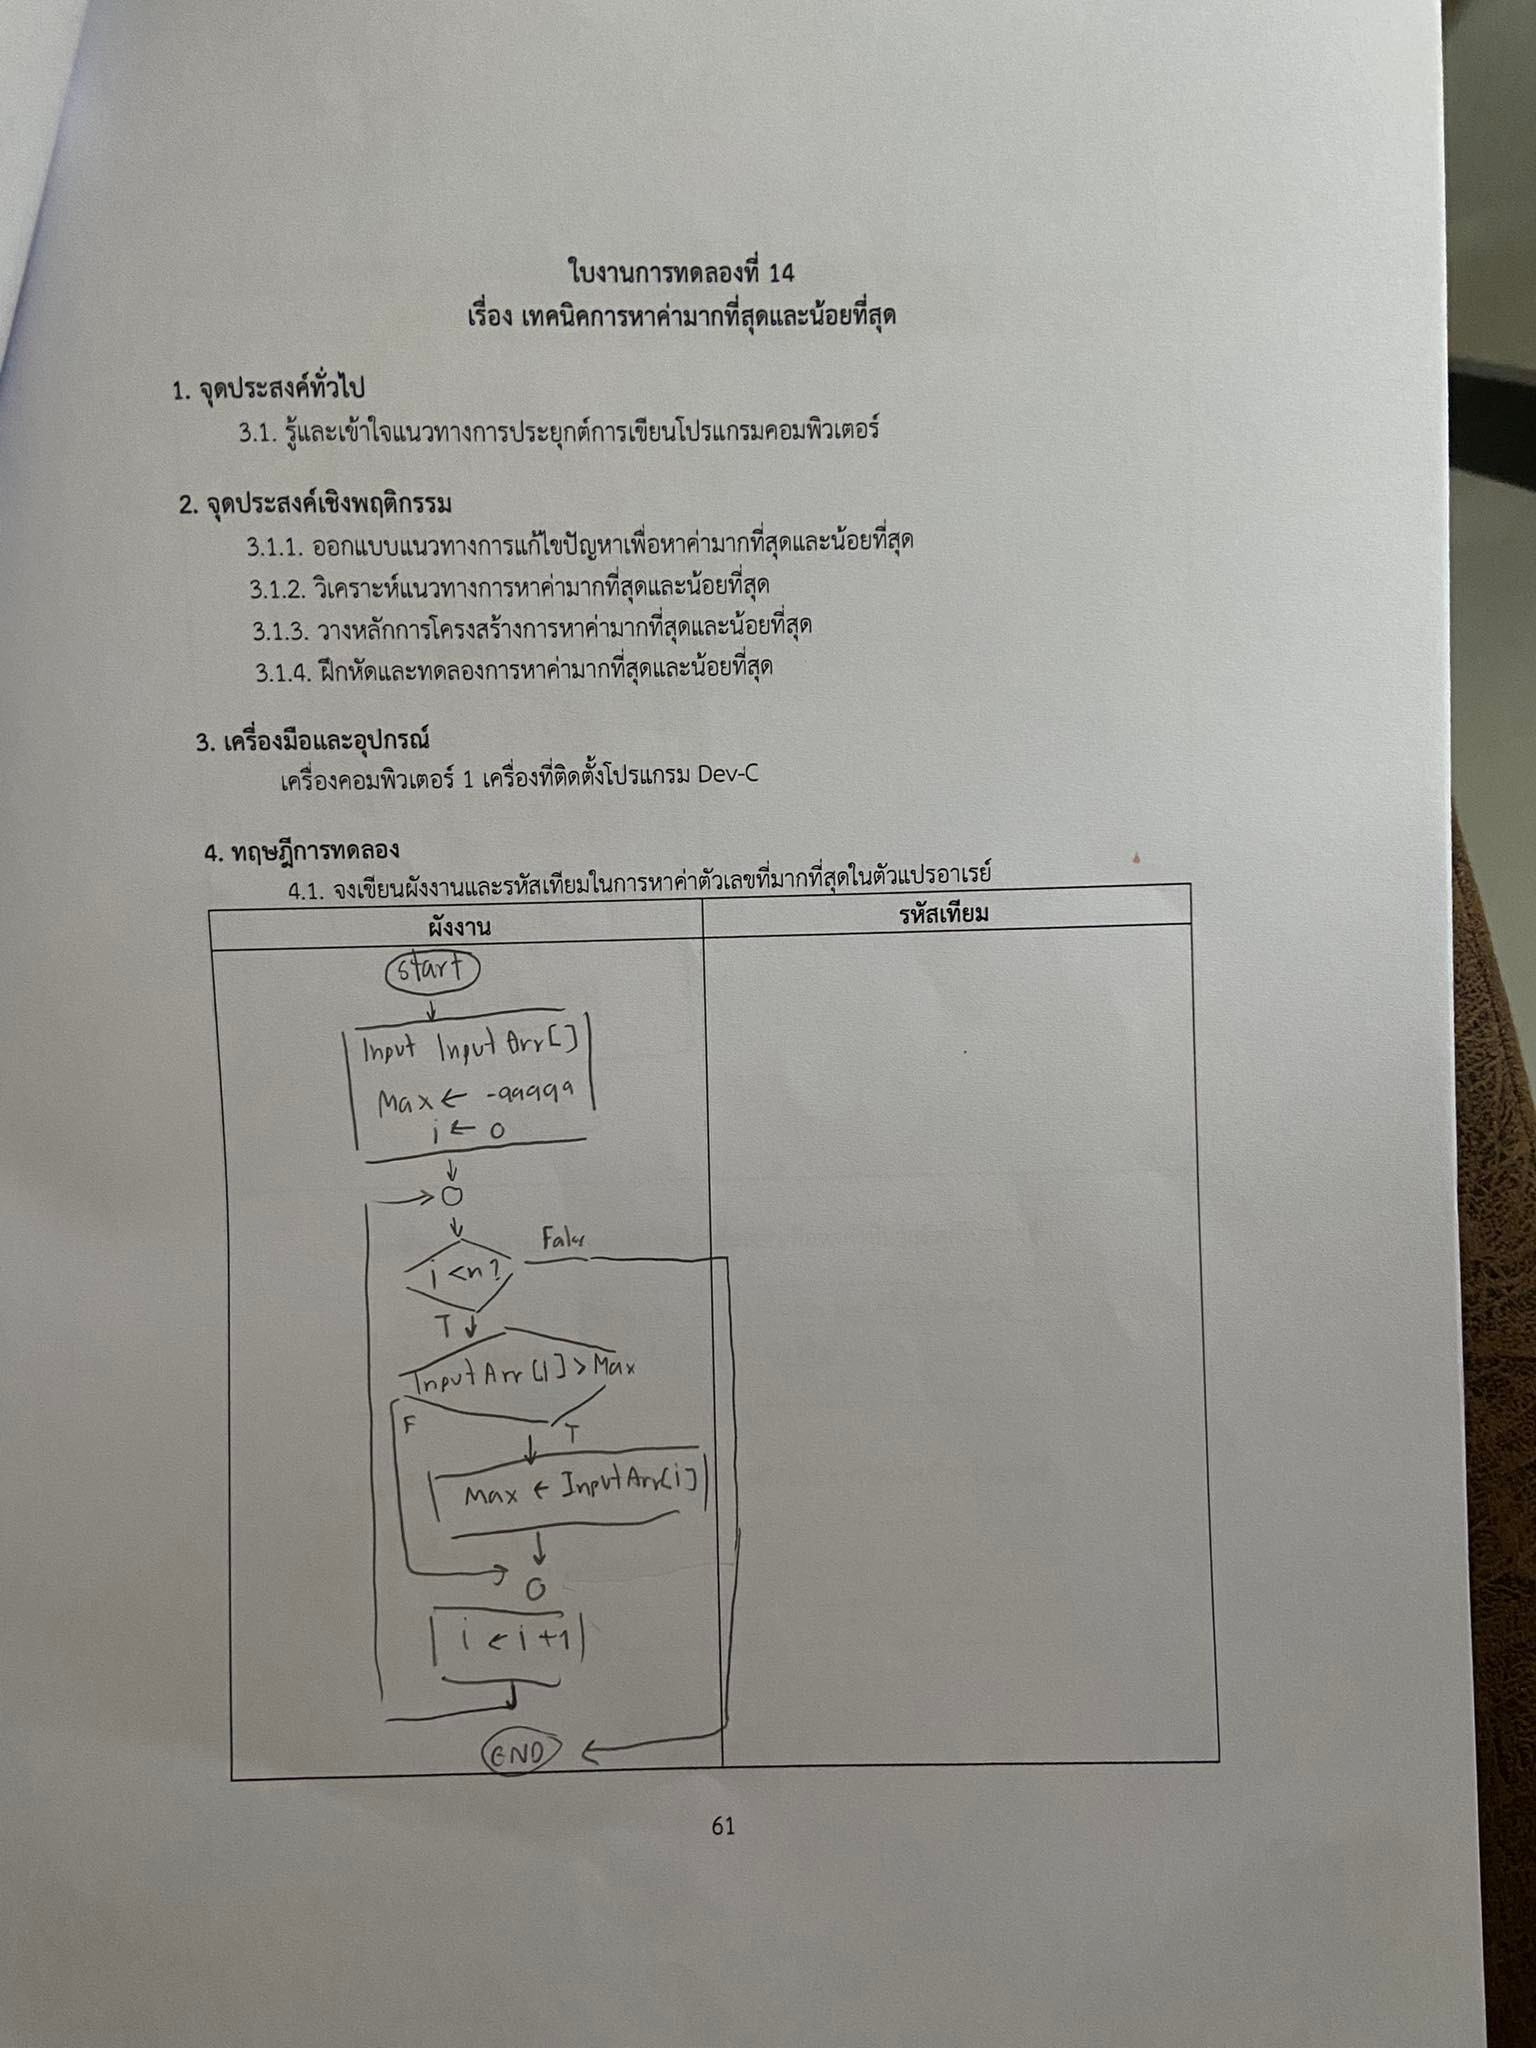 ใบงานการทดลองที่ 14
เรื่อง เทคนิคการหาค่ามากที่สุดและน้อยที่สุด
1. จุดประสงค์ทั่วไป
3.1. รู้และเข้าใจแนวทางการประยุกต์การเขียนโปรแกรมคอมพิวเตอร์
2. จุดประสงค์เชิงพฤติกรรม
3.1.1. ออกแบบแนวทางการแก้ไขปัญหาเพื่อหาค่ามากที่สุดและน้อยที่สุด
3.1.2. วิเคราะห์แนวทางการหาค่ามากที่สุดและน้อยที่สุด
3.1.3. วางหลักการโครงสร้างการหาค่ามากที่สุดและน้อยที่สุด
3.1.4. ฝึกหัดและทดลองการหาค่ามากที่สุดและน้อยที่สุด
3. เครื่องมือและอุปกรณ์
เครื่องคอมพิวเตอร์ 1 เครื่องที่ติดตั้งโปรแกรม Dev-C
4. ทฤษฎีการทดลอง
4.1. จงเขียนผังงานและรหัสเทียมในการหาค่าตัวเลขที่มากที่สุดในตัวแปรอาเรย์
ผังงาน
รหัสเทียม
start
Input InputArr[]
Max ← -99999
i ← 0
i <n?
False
T
InputArr[i] > Max
F
T
Max ← InputArr[i]
i ← i +1
END
61